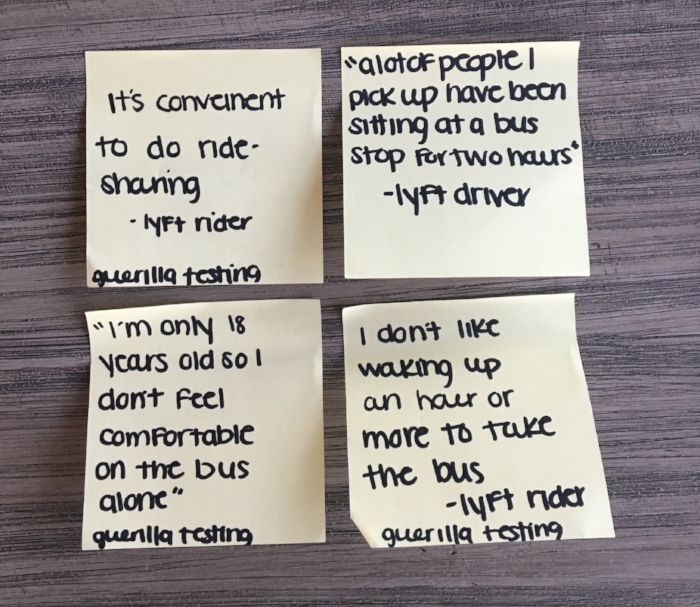 It's conveinent
to do ride-
sharing
- lyft rider
guerilla testing
"alot of people I
pick up have been
sitting at a bus
stop for two hours"
-lyft driver
"I'm only 18
years old so I
don't feel
comfortable
on the bus
alone"
guerilla testing
I don't like
waking up
an hour or
more to take
the bus
-lyft rider
guerilla testing